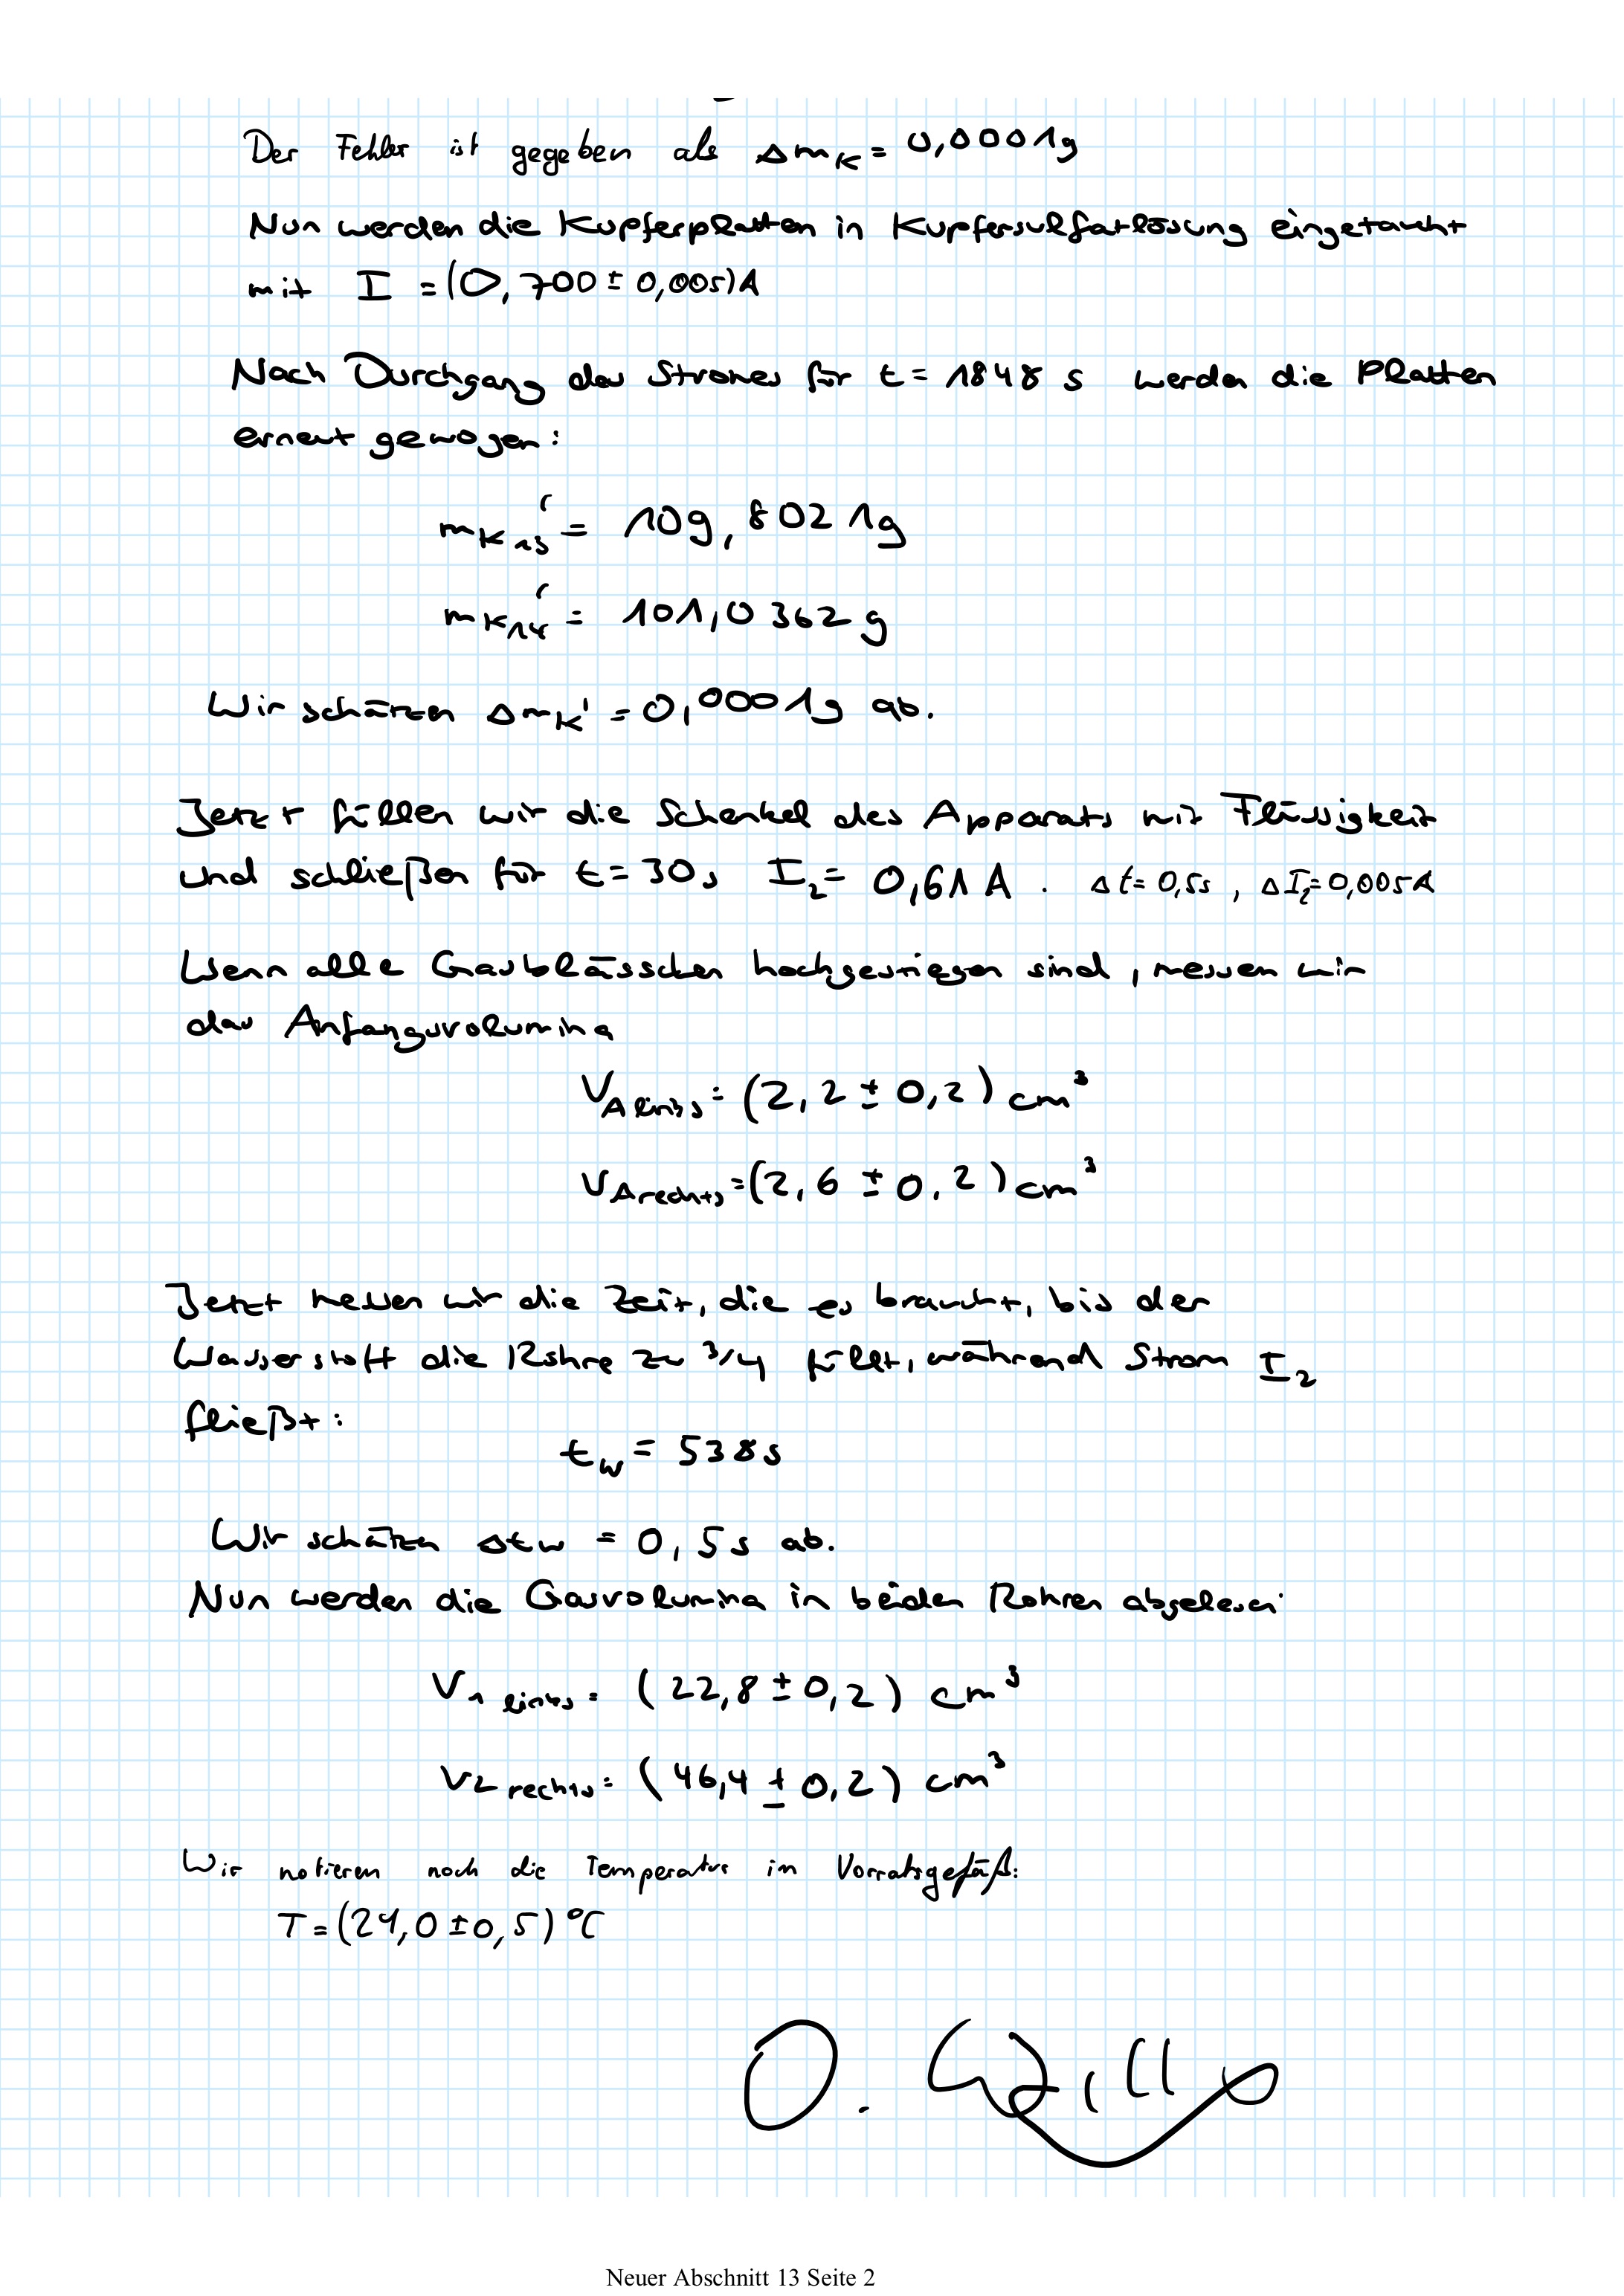 Der Fehler ist gegeben als Δm_K = 0,0001g
Nun werden die Kupferplatten in Kupfersulfatlösung eingetaucht
mit I = (0,700 ± 0,005)A
Nach Durchgang des Stromes für t = 1848 s werden die Platten
erneut gewogen:
m_K13' = 109,8021g
m_K14' = 101,0362g
Wir schätzen Δm_K' = 0,0001g ab.
Jetzt füllen wir die Schenkel des Apparats mit Flüssigkeit
und schließen für t = 30s I₂ = 0,61A . Δt = 0,5s , ΔI₂ = 0,005A
Wenn alle Gasblässchen hochgestiegen sind, messen wir
das Anfangsvolumina
V_A links = (2,2 ± 0,2) cm³
V_A rechts = (2,6 ± 0,2) cm³
Jetzt messen wir die Zeit, die es braucht, bis der
Wasserstoff die Röhre zu 3/4 füllt, während Strom I₂
fließt:
t_W = 538s
Wir schätzen Δt_W = 0,5s ab.
Nun werden die Gasvolumina in beiden Rohren abgelesen:
V_1 links = (22,8 ± 0,2) cm³
V_2 rechts = (46,4 ± 0,2) cm³
Wir notieren noch die Temperatur im Vorratsgefäß:
T = (24,0 ± 0,5) °C
Neuer Abschnitt 13 Seite 2